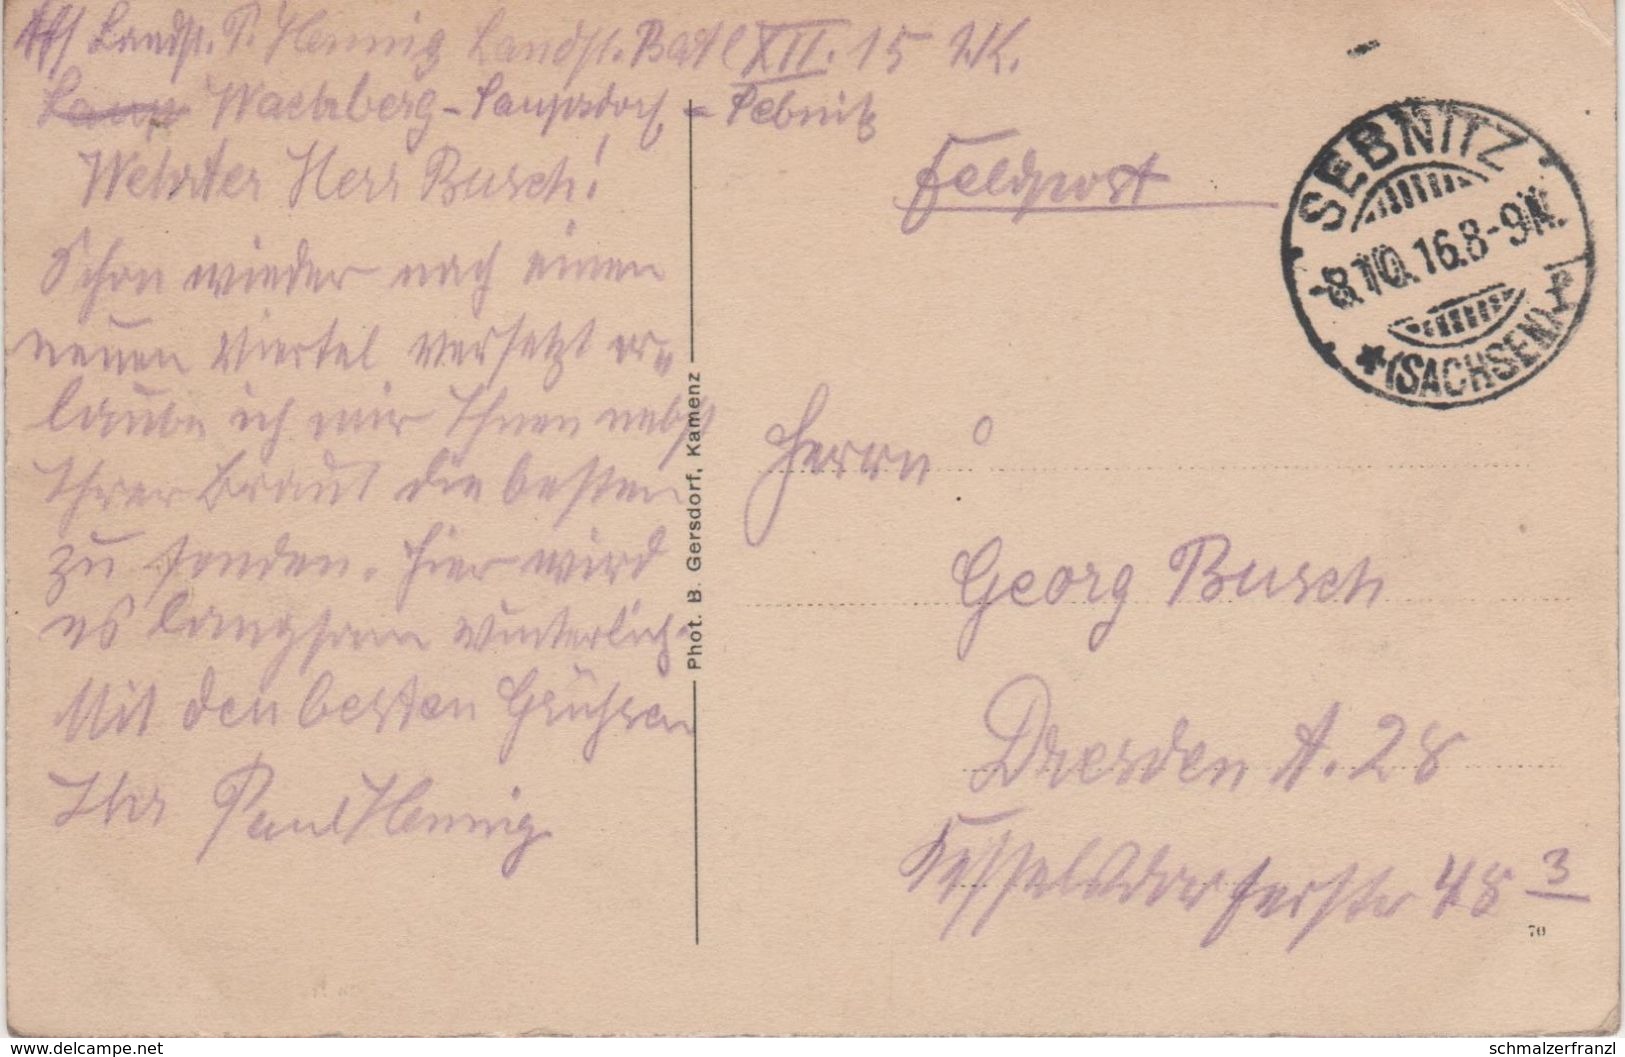 Landst. P. Hennig Landst. Batl XII. 15 2K.
Wachberg - Saupsdorf - Sebnitz
Werter Herr Busch!
Schon wieder nach einem
neuen Viertel versetzt er„
laube ich mir Ihnen nebst
Ihrer Braut die besten
zu senden. Hier wird
es langsam winterlich.
Mit den besten Grüssen
Ihr Paul Hennig
Phot. B. Gersdorf, Kamenz
Feldpost
SEBNITZ
8.10.16.8-9N.
★(SACHSEN)
Herrn
Georg Busch
Dresden A. 28
Kesselsdorferstr 48 3
70
www.delcampe.net
schmalzerfranzl